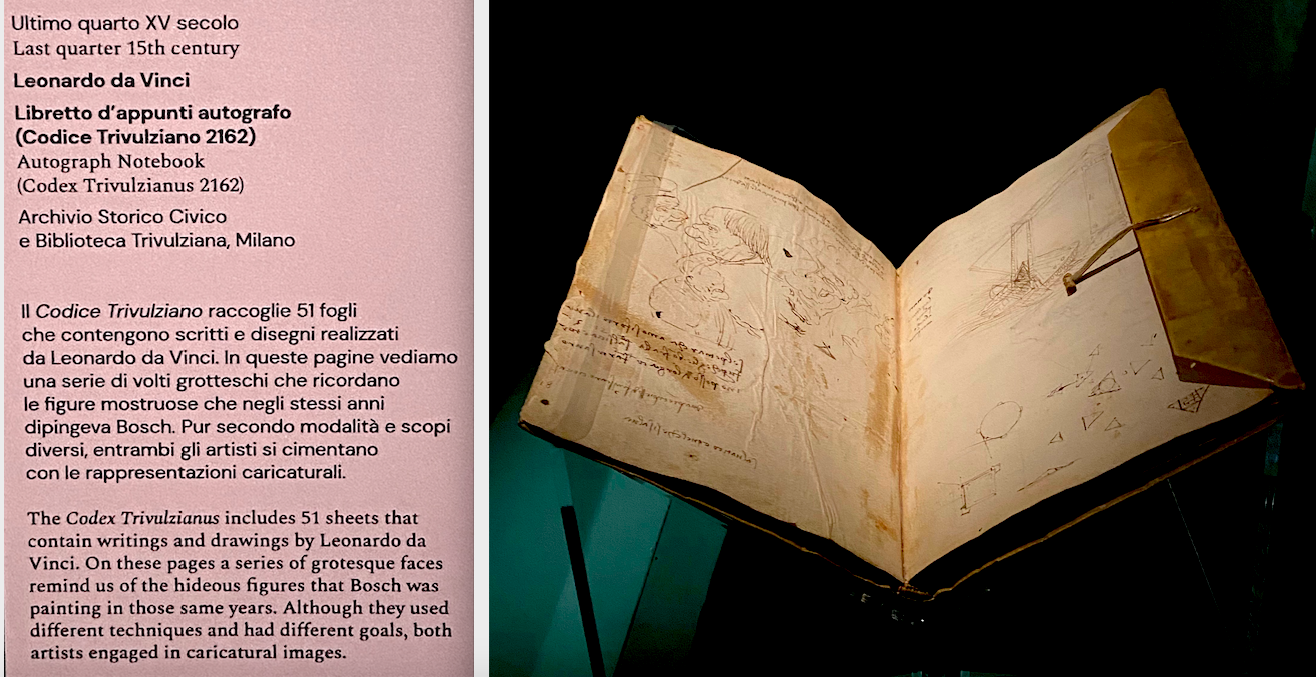 Ultimo quarto XV secolo
Last quarter 15th century
Leonardo da Vinci
Libretto d’appunti autografo
(Codice Trivulziano 2162)
Autograph Notebook
(Codex Trivulzianus 2162)
Archivio Storico Civico
e Biblioteca Trivulziana, Milano
Il Codice Trivulziano raccoglie 51 fogli
che contengono scritti e disegni realizzati
da Leonardo da Vinci. In queste pagine vediamo
una serie di volti grotteschi che ricordano
le figure mostruose che negli stessi anni
dipingeva Bosch. Pur secondo modalità e scopi
diversi, entrambi gli artisti si cimentano
con le rappresentazioni caricaturali.
The Codex Trivulzianus includes 51 sheets that
contain writings and drawings by Leonardo da
Vinci. On these pages a series of grotesque faces
remind us of the hideous figures that Bosch was
painting in those same years. Although they used
different techniques and had different goals, both
artists engaged in caricatural images.